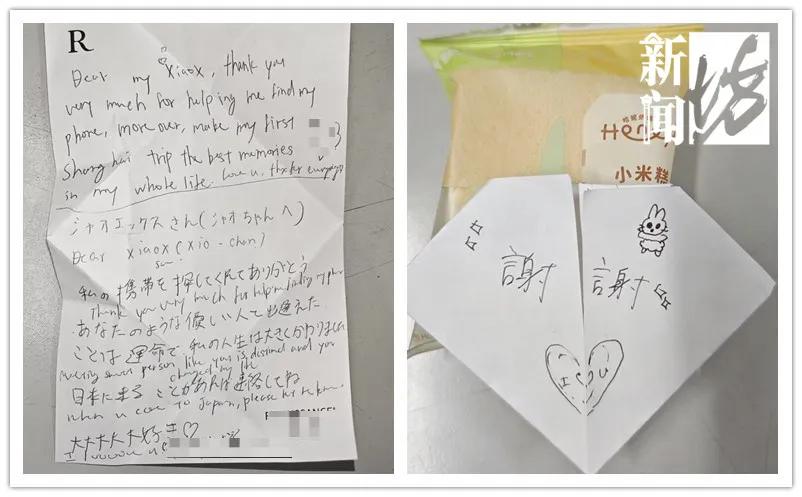 R
Dear my xiaox, thank you
very much for helping me find my
phone, more over, make my first
Shanghai trip the best memories
in my whole life. Love u, thx for everything
シャオエックスさん(シャオちゃんへ)
Dear xiaox (xio-chan)
san
私の携帯を探してくれてありがとう
Thank you very much for help me finding my phone
あなたのような優しい人で出逢えた
ことは運命で私の人生は大きくかわりました
Meeting sweet person like you is destined and you
changed my life
日本に来ることがあれば連絡してね
when u come to Japan, please let me know.
大大大大大好き♡
I
新闻坊
小米糕
謝謝
I ♡ U